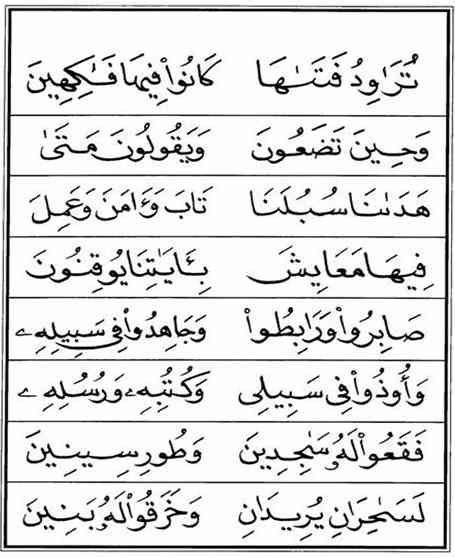 تُرَٰوِدُ فَتَىٰهَا كَانُوا۟ فِيهَا فَـٰكِهِينَ
وَحِينَ تَضَعُونَ وَيَقُولُونَ مَتَىٰ
هَدَىٰنَا سُبُلَنَا تَابَ وَءَامَنَ وَعَمِلَ
فِيهَا مَعَـٰيِشَ بِـَٔايَـٰتِنَا يُوقِنُونَ
صَابِرُوا۟ وَرَابِطُوا۟ وَجَـٰهِدُوا۟ فِى سَبِيلِهِۦ
وَأُوذُوا۟ فِى سَبِيلِى وَكُتُبِهِۦ وَرُسُلِهِۦ
فَقَعُوا۟ لَهُۥ سَـٰجِدِينَ وَطُورِ سِينِينَ
لَسَـٰحِرَٰنِ يُرِيدَانِ وَخَرَقُوا۟ لَهُۥ بَنِينَ